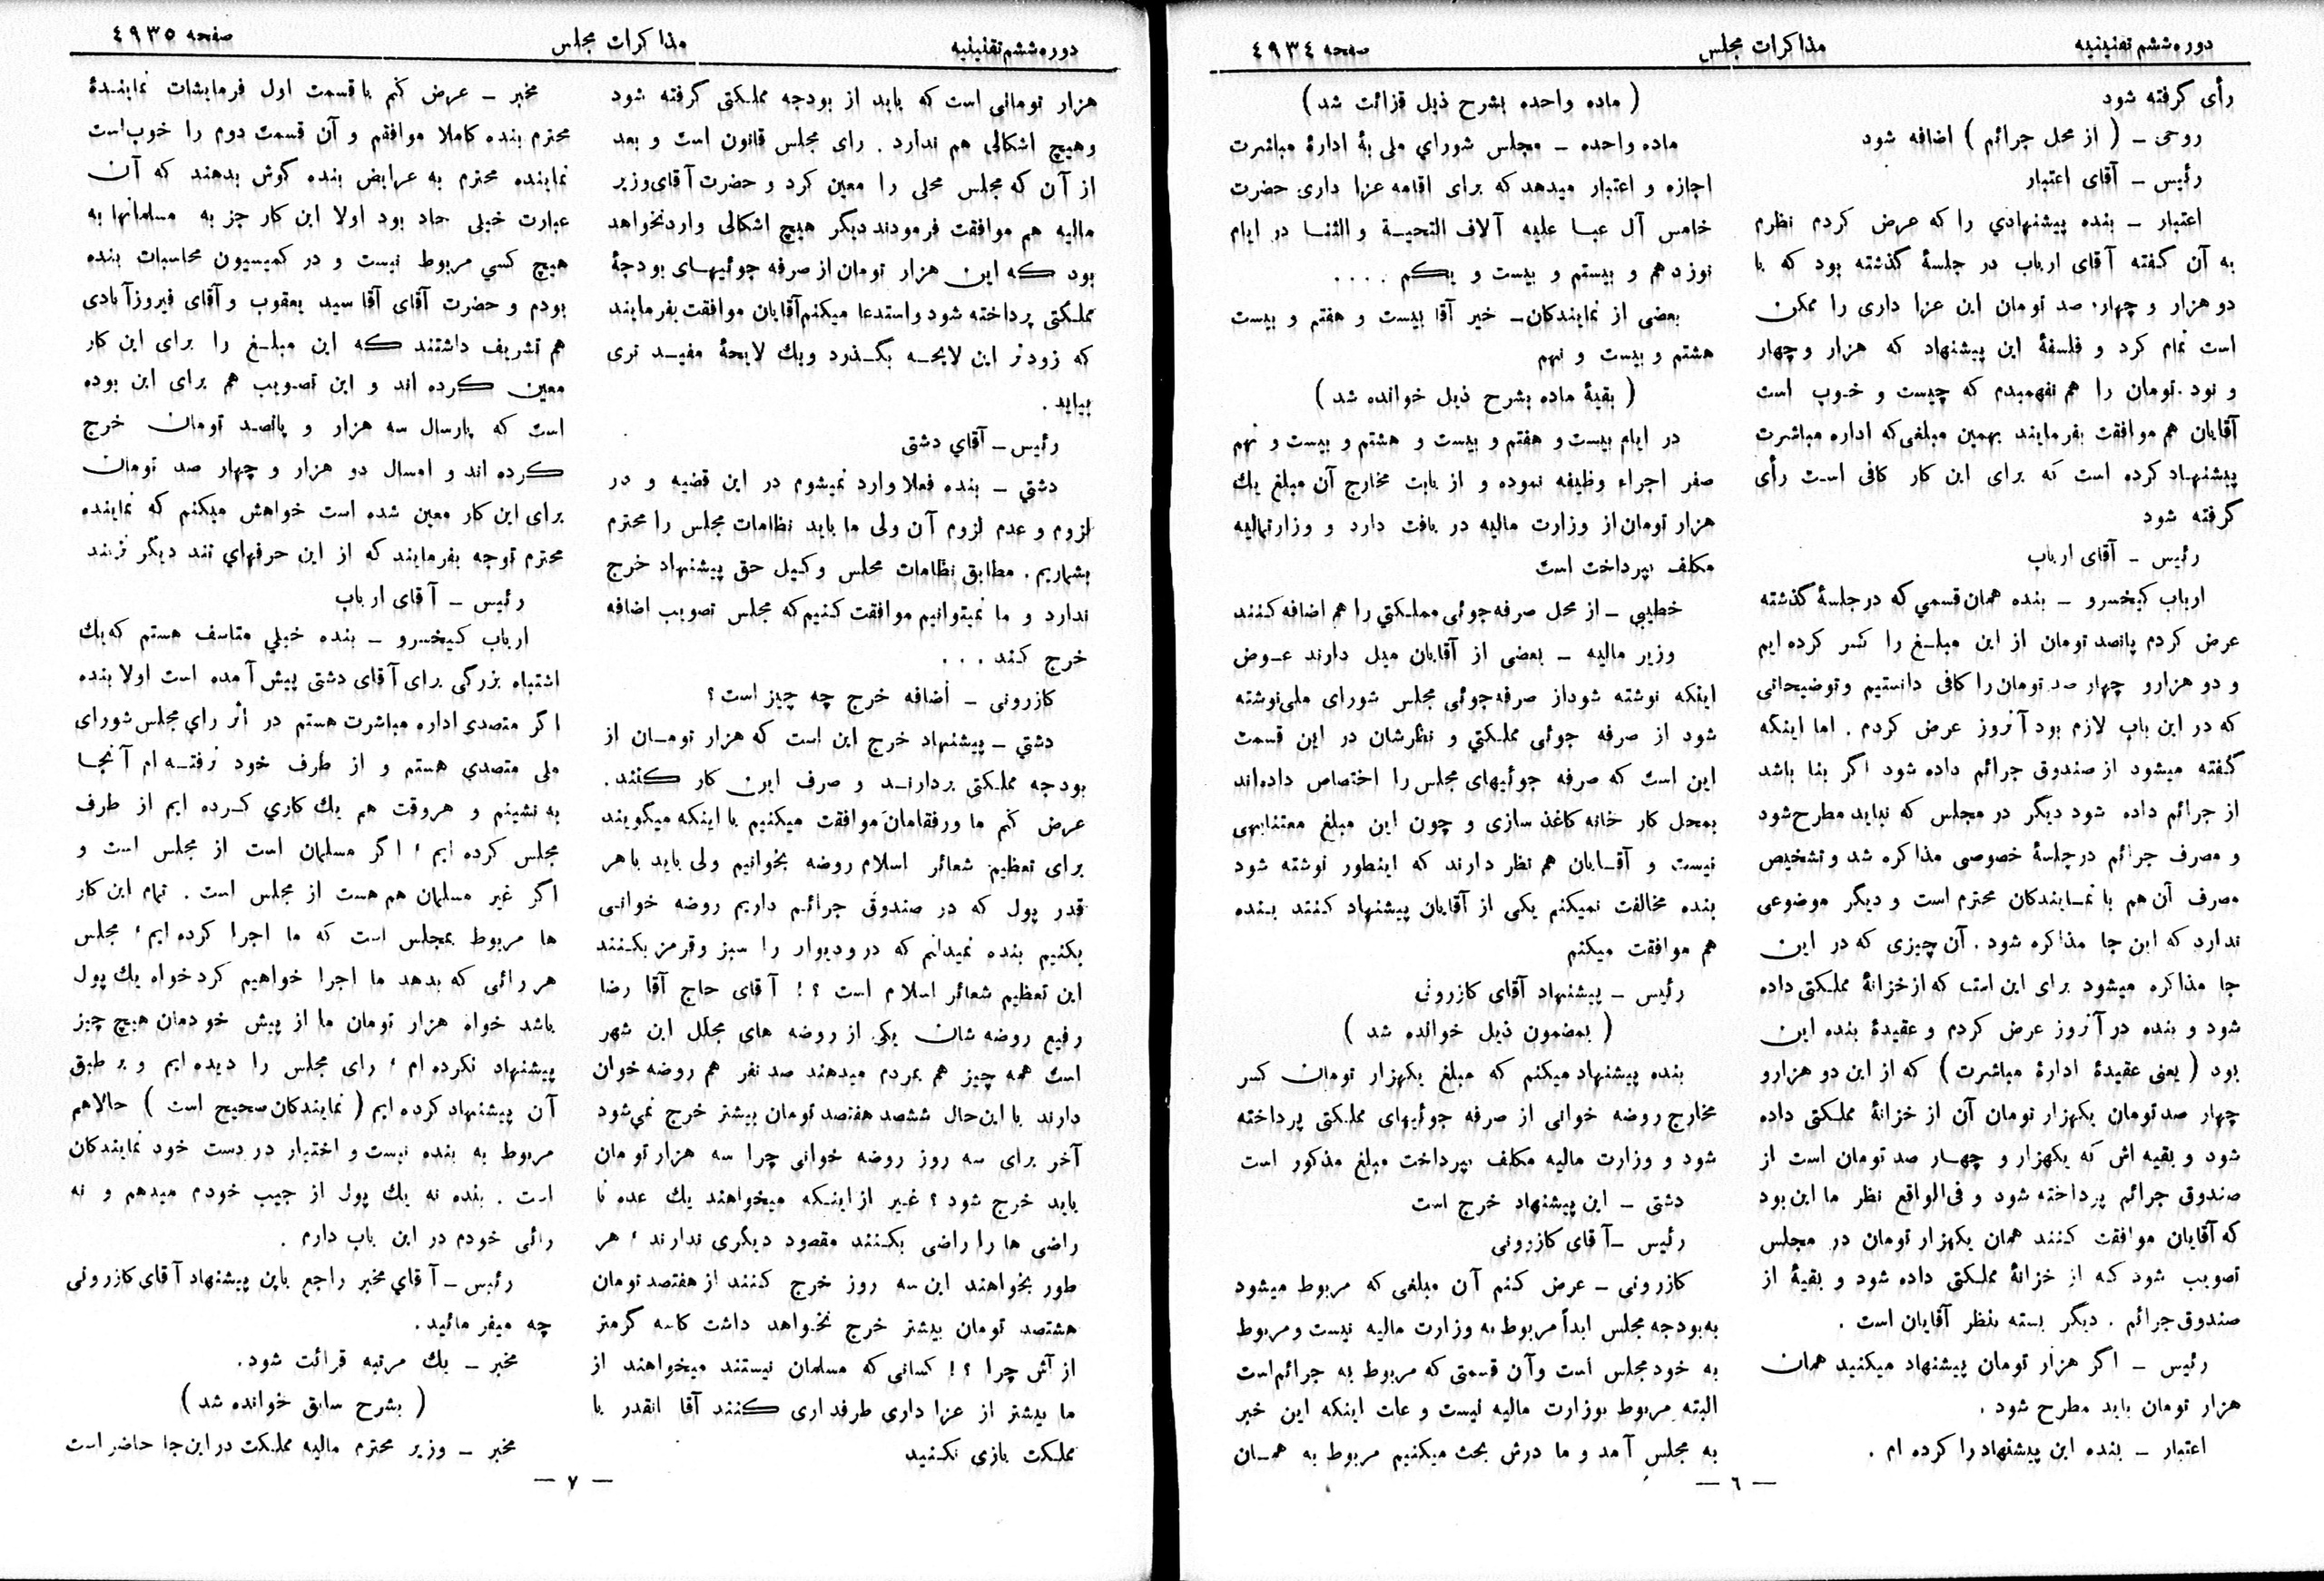 دوره ششم تقنینیه
مذاکرات مجلس
صفحه ٤٩٣٤
رأی گرفته شود
روحی ـ ( از محل جرائم ) اضافه شود
رئیس ـ آقای اعتبار
اعتبار ـ بنده پیشنهادي را که عرض کردم نظرم
به آن گفته آقای ارباب در جلسۀ گذشته بود که با
دو هزار و چهار صد تومان این عزا داری را ممکن
است تمام کرد و فلسفۀ این پیشنهاد که هزار و چهار
و نود تومان را هم نفهمیدم که چیست و خوب است
آقایان هم موافقت بفرمایند بهمین مبلغی که اداره مباشرت
پیشنهاد کرده است که برای این کار کافی است رأی
گرفته شود
رئیس ـ آقای ارباب
ارباب کیخسرو ـ بنده همان قسمي که در جلسۀ گذشته
عرض کردم پانصد تومان از این مبلـغ را کسر کرده ایم
و دو هزارو چهار صد تومان را کافی دانستیم و توضیحاتی
که در این باب لازم بود آنروز عرض کردم . اما اینکه
گفته میشود از صندوق جرائم داده شود اگر بنا باشد
از جرائم داده شود دیگر در مجلس که نباید مطرح شود
و مصرف جرائم در جلسۀ خصوصی مذاکره شد و تشخیص
مصرف آن هم با نمـایندکان محترم است و دیگر موضوعی
ندارد که این جا مذاکره شود . آن چیزی که در این
جا مذاکره میشود برای این است که از خزانۀ مملکتی داده
شود و بنده در آنروز عرض کردم و عقیدۀ بنده این
بود ( یعنی عقیدۀ ادارۀ مباشرت ) که از این دو هزارو
چهار صد تومان یکهزار تومان آن از خزانۀ مملکتی داده
شود و بقیه اش که یکهزار و چهـار صد تومان است از
صندوق جرائم پرداخته شود و فی‌الواقع نظر ما این بود
که آقایان موافقت کنند همان یکهزار تومان در مجلس
تصویب شود که از خزانۀ مملکتی داده شود و بقیۀ از
صندوق جرائم . دیگر بسته بنظر آقایان است .
رئیس ـ اگر هزار تومان پیشنهاد میکنید همان
هزار تومان باید مطرح شود .
اعتبار ـ بنده این پیشنهاد را کرده ام .
( ماده واحده بشرح ذیل قرائت شد )
ماده واحده ـ مجلس شوراي ملی بۀ ادارۀ مباشرت
اجازه و اعتبار میدهد که برای اقامه عزا داری حضرت
خامس آل عبـا علیه آلاف التحیـة والثنـا در ایام
نوزدهم و بیستم و بیست و یکم ....
بعضی از نمایندکان ـ خیر آقا بیست و هفتم و بیست
هشتم و بیست و نهم
( بقیۀ ماده بشرح ذیل خوانده شد )
در ایام بیست و هفتم و بیست و هشتم و بیست و نهم
صفر اجراء وظیفه نموده و از بابت مخارج آن مبلغ یك
هزار تومان از وزارت مالیه در یافت دارد و وزارتمالیه
مکلف بپرداخت است
خطیبي ـ از محل صرفه جوئی مملکتي را هم اضافه کنند
وزیر مالیه ـ بعضی از آقایان میل دارند عـوض
اینکه نوشته شود از صرفه جوئی مجلس شورای ملی نوشته
شود از صرفه جوئی مملکتي و نظرشان در این قسمت
این است که صرفه جوئیهای مجلس را اختصاص داده‌اند
بمحل کار خانه کاغذ سازی و چون این مبلغ معتنابهی
نیست و آقـایان هم نظر دارند که اینطور نوشته شود
بنده مخالفت نمیکنم یکی از آقایان پیشنهاد کنند بنده
هم موافقت میکنم
رئیس ـ پیشنهاد آقای کازرونی
( بمضمون ذیل خوانده شد )
بنده پیشنهاد میکنم که مبلغ یکهزار تومان کسر
مخارج روضه خوانی از صرفه جوئیهای مملکتی پرداخته
شود و وزارت مالیه مکلف بپرداخت مبلغ مذکور است
دشتی ـ این پیشنهاد خرج است
رئیس ـ آقای کازرونی
کازرونی ـ عرض کنم آن مبلغی که مربوط میشود
به بودجه مجلس ابداً مربوط به وزارت مالیه نیست و مربوط
به خود مجلس است و آن قسمتی که مربوط به جرائم است
البته مربوط بوزارت مالیه نیست و علت اینکه این خبر
به مجلس آمد و ما درش بحث میکنیم مربوط به همـان
— ٦ —
دوره ششم تقنینیه
مذاکرات مجلس
صفحه ٤٩٣٥
هزار تومانی است که باید از بودجه مملکتی گرفته شود
وهیچ اشکالی هم ندارد . رای مجلس قانون است و بعد
از آن که مجلس محلی را معین کرد و حضرت آقای وزیر
مالیه هم موافقت فرمودند دیگر هیچ اشکالی وارد نخواهد
بود که این هزار تومان از صرفه جوئیهـای بودجۀ
مملکتی پرداخته شود و استدعا میکنم آقایان موافقت بفرمایند
که زودتر این لایحـه بگـذرد و یك لایحۀ مفیـد تری
بیاید .
رئیس ـ آقاي دشتی
دشتي ـ بنده فعلا وارد نمیشوم در این قضیه و در
لزوم و عدم لزوم آن ولی ما باید نظامات مجلس را محترم
بشماریم . مطابق نظامات مجلس وکیل حق پیشنهاد خرج
ندارد و ما نمیتوانیم موافقت کنیم که مجلس تصویب اضافه
خرج کند ...
کازرونی ـ اضافه خرج چه چیز است ؟
دشتي ـ پیشنهاد خرج این است که هزار تومـان از
بودجه مملکتی بردارنـد و صرف این کار کنند .
عرض کنم ما ورفقامان موافقت میکنیم با اینکه میگویند
برای تعظیم شعائر اسلام روضه بخوانیم ولی باید با هر
قدر پول که در صندوق جرائم داریم روضه خوانی
بکنیم بنده نمیدانم که درودیوار را سبز وقرمز بکـنند
این تعظیم شعائر اسلام است ؟! آقای حاج آقا رضا
رفیع روضه شان یکی از روضه های مجلل این شهر
است همه چیز هم بمردم میدهند صد نفر هم روضه خوان
دارند با این حال ششصد هفتصد تومان بیشتر خرج نمی‌شود
آخر برای سه روز روضه خوانی چرا سه هزار تومان
باید خرج شود ؟ غـیر از اینـکه میخواهند یك عده نا
راضی ها را راضی بکـنند مقصود دیگری ندارند ، هر
طور بخواهند این سه روز خرج کنند از هفتصد تومان
هشتصد تومان بیشتر خرج نخواهد داشت کاسه گرمتر
از آش چرا ؟! کسانی که مسلمان نیستند میخواهند از
ما بیشتر از عزا داری طرفداری کنند آقا انقدر با
مملکت بازی نکنید
مخبر ـ عرض کنم با قسمت اول فرمایشات نماینـدۀ
محترم بنده کاملا موافقم و آن قسمت دوم را خوب است
نماینده محترم به عرایض بنده گوش بدهند که آن
عبارت خیلی حاد بود اولا این کار جز به مسلمانها به
هیچ کسي مربوط نیست و در کمیسیون محاسبات بنده
بودم و حضرت آقای آقا سید یعقوب و آقای فیروزآبادی
هم تشریف داشتند که این مبلـغ را برای این کار
معین کرده اند و این تصویب هم برای این بوده
است که پارسال سه هزار و پانصد تومان خرج
کرده اند و امسال دو هزار و چهار صد تومان
برای این کار معین شده است خواهش میکنم که نماینده
محترم توجه بفرمایند که از این حرفهاي تند دیگر نزنند
رئیس ـ آقای ارباب
ارباب کیخسرو ـ بنده خیلي متاسف هستم که یك
اشتباه بزرگی برای آقای دشتی پیش آمده است اولا بنده
اگر متصدی اداره مباشرت هستم در اثر راي مجلس شورای
ملی متصدي هستم و از طرف خود نرفتـه ام آنجـا
به نشینم و هروقت هم یك کاري کـرده ایم از طرف
مجلس کرده ایم ، اگر مسلمان است از مجلس است و
اگر غیر مسلمان هم هست از مجلس است . تمام این کار
ها مربوط بمجلس است که ما اجرا کرده ایم ، مجلس
هر رائی که بدهد ما اجرا خواهیم کرد خواه یك پول
باشد خواه هزار تومان ما از پیش خودمان هیچ چیز
پیشنهاد نکرده ام ، رای مجلس را دیده ایم و بر طبق
آن پیشنهاد کرده ایم ( نمایندکان صحیح است ) حالاهم
مربوط به بنده نیست و اختیار در دست خود نمایندکان
است . بنده نه یك پول از جیب خودم میدهم و نه
رائی خودم در این باب دارم .
رئیس ـ آقاي مخبر راجع باین پیشنهاد آقای کازرونی
چه میفرمائید .
مخبر ـ یك مرتبه قرائت شود .
( بشرح سابق خوانده شد )
مخبر ـ وزیر محترم مالیه مملکت در این جا حاضر است
— ٧ —